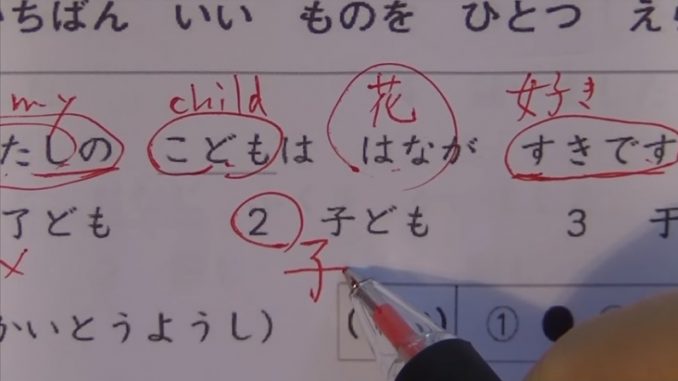 ちばん いい ものを ひとつ え
my child 花 好き
たしの こどもは はなが すきです
了ども 2 子ども 3 于
× 子
かいとうようし) ( ) ① ●